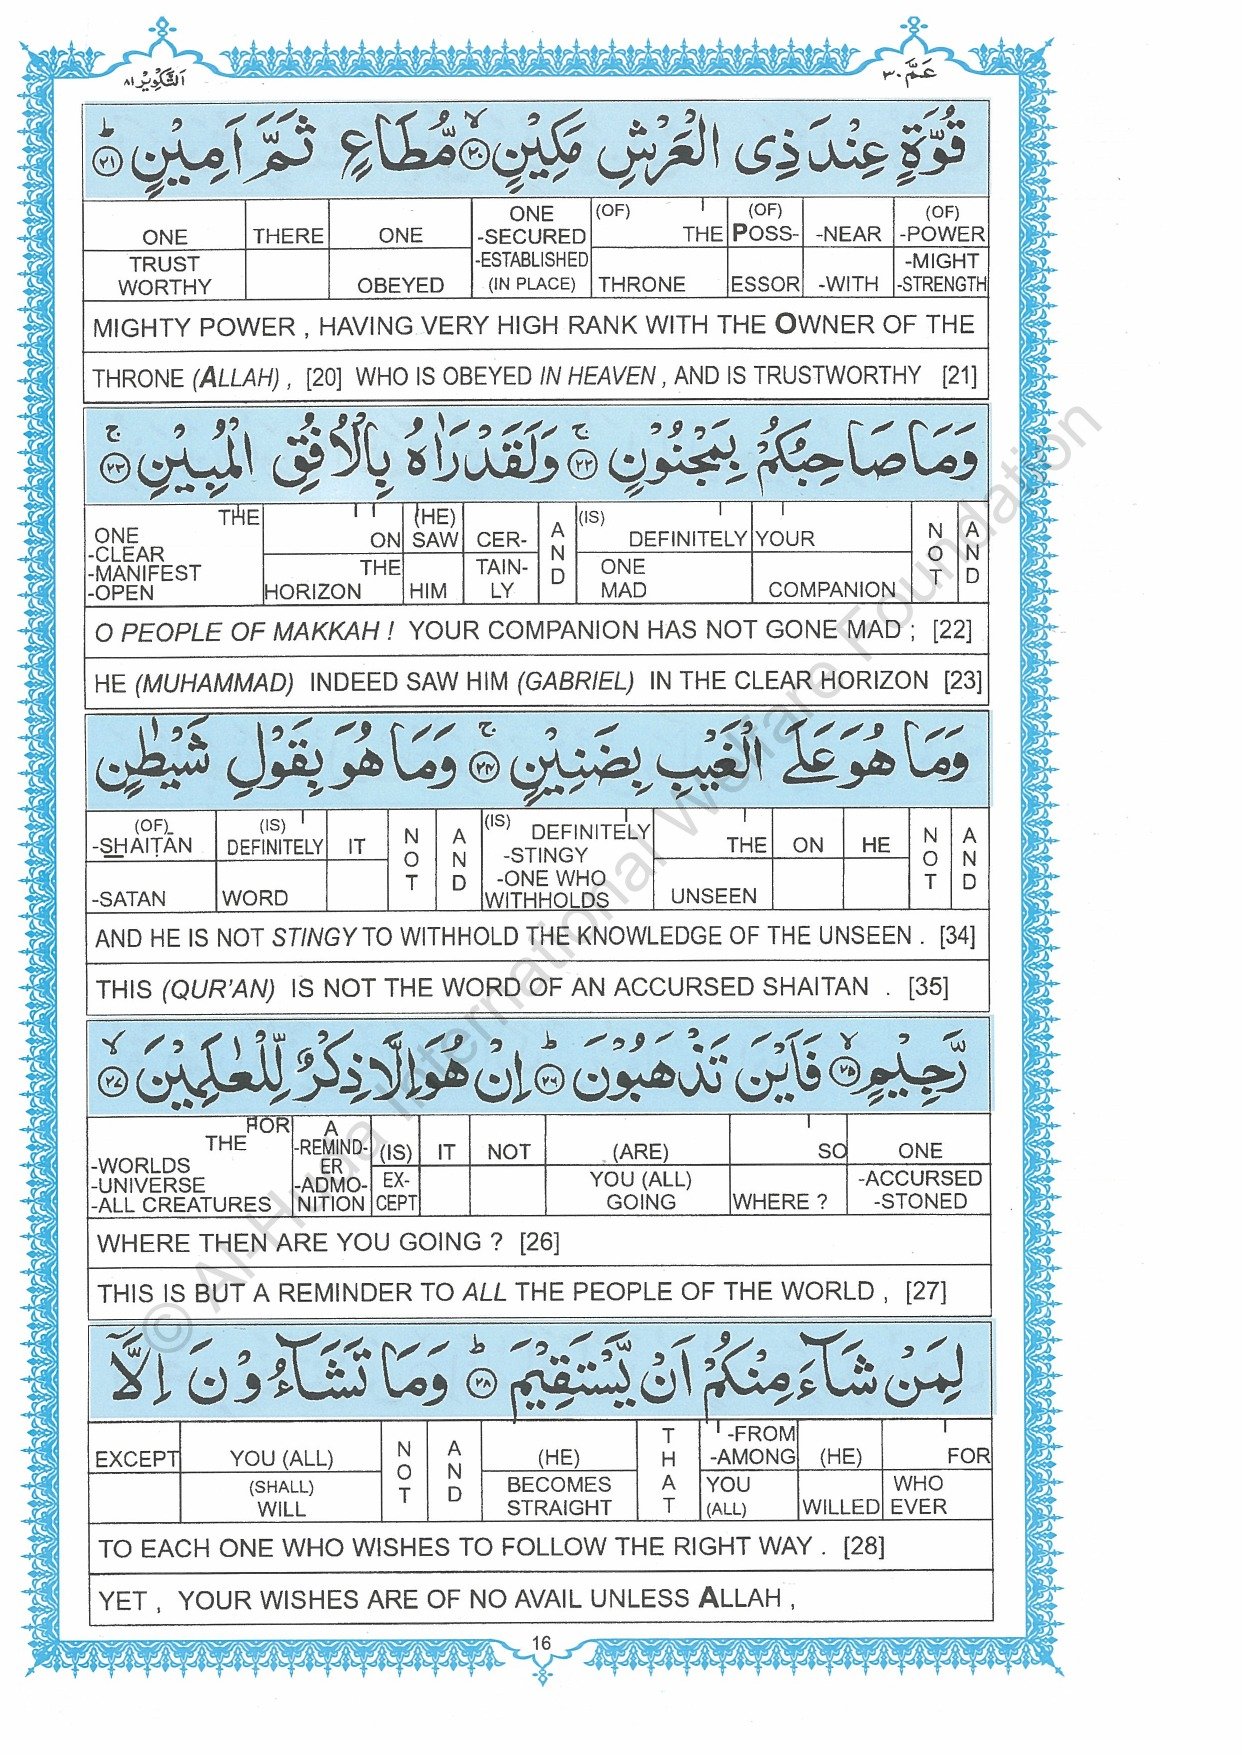 التَّكْوِيْر ٨١
عَمَّ ٣٠
قُوَّةٍ عِنْدَ ذِى الْعَرْشِ مَكِيْنٍ ۙ﴿٢٠﴾ مُّطَاعٍ ثَمَّ اَمِيْنٍ ؕ﴿٢١﴾
ONE THERE ONE ONE -SECURED (OF) THE (OF) POSS- -NEAR (OF) -POWER
TRUST WORTHY OBEYED -ESTABLISHED (IN PLACE) THRONE ESSOR -WITH -MIGHT -STRENGTH
MIGHTY POWER , HAVING VERY HIGH RANK WITH THE OWNER OF THE
THRONE (ALLAH) , [20] WHO IS OBEYED IN HEAVEN , AND IS TRUSTWORTHY [21]
وَمَا صَاحِبُكُمْ بِمَجْنُوْنٍ ۚ﴿٢٢﴾ وَلَقَدْ رَاٰهُ بِالْاُفُقِ الْمُبِيْنِ ۚ﴿٢٣﴾
THE ONE -CLEAR -MANIFEST -OPEN ON (HE) SAW CER- AND (IS) DEFINITELY YOUR NOT AND
THE HORIZON HIM TAIN- LY ONE MAD COMPANION
O PEOPLE OF MAKKAH ! YOUR COMPANION HAS NOT GONE MAD ; [22]
HE (MUHAMMAD) INDEED SAW HIM (GABRIEL) IN THE CLEAR HORIZON [23]
وَمَا هُوَ عَلَى الْغَيْبِ بِضَنِيْنٍ ۚ﴿٢٤﴾ وَمَا هُوَ بِقَوْلِ شَيْطٰنٍ
(OF) -SHAIṬAN (IS) DEFINITELY IT NOT AND (IS) DEFINITELY -STINGY THE ON HE NOT AND
-SATAN WORD -ONE WHO WITHHOLDS UNSEEN
AND HE IS NOT STINGY TO WITHHOLD THE KNOWLEDGE OF THE UNSEEN . [34]
THIS (QUR'AN) IS NOT THE WORD OF AN ACCURSED SHAITAN . [35]
رَّجِيْمٍ ۙ﴿٢٥﴾ فَاَيْنَ تَذْهَبُوْنَ ؕ﴿٢٦﴾ اِنْ هُوَ اِلَّا ذِكْرٌ لِّلْعٰلَمِيْنَ ۙ﴿٢٧﴾
FOR THE A -REMIND- ER (IS) IT NOT (ARE) SO ONE
-WORLDS -UNIVERSE -ALL CREATURES -ADMO- NITION EX- CEPT YOU (ALL) GOING WHERE ? -ACCURSED -STONED
WHERE THEN ARE YOU GOING ? [26]
THIS IS BUT A REMINDER TO ALL THE PEOPLE OF THE WORLD , [27]
لِمَنْ شَآءَ مِنْكُمْ اَنْ يَّسْتَقِيْمَ ؕ﴿٢٨﴾ وَمَا تَشَآءُوْنَ اِلَّآ
EXCEPT YOU (ALL) NOT AND (HE) THAT -FROM -AMONG (HE) FOR
(SHALL) WILL BECOMES STRAIGHT YOU (ALL) WILLED WHO EVER
TO EACH ONE WHO WISHES TO FOLLOW THE RIGHT WAY . [28]
YET , YOUR WISHES ARE OF NO AVAIL UNLESS ALLAH ,
16
© Al-Huda International Welfare Foundation